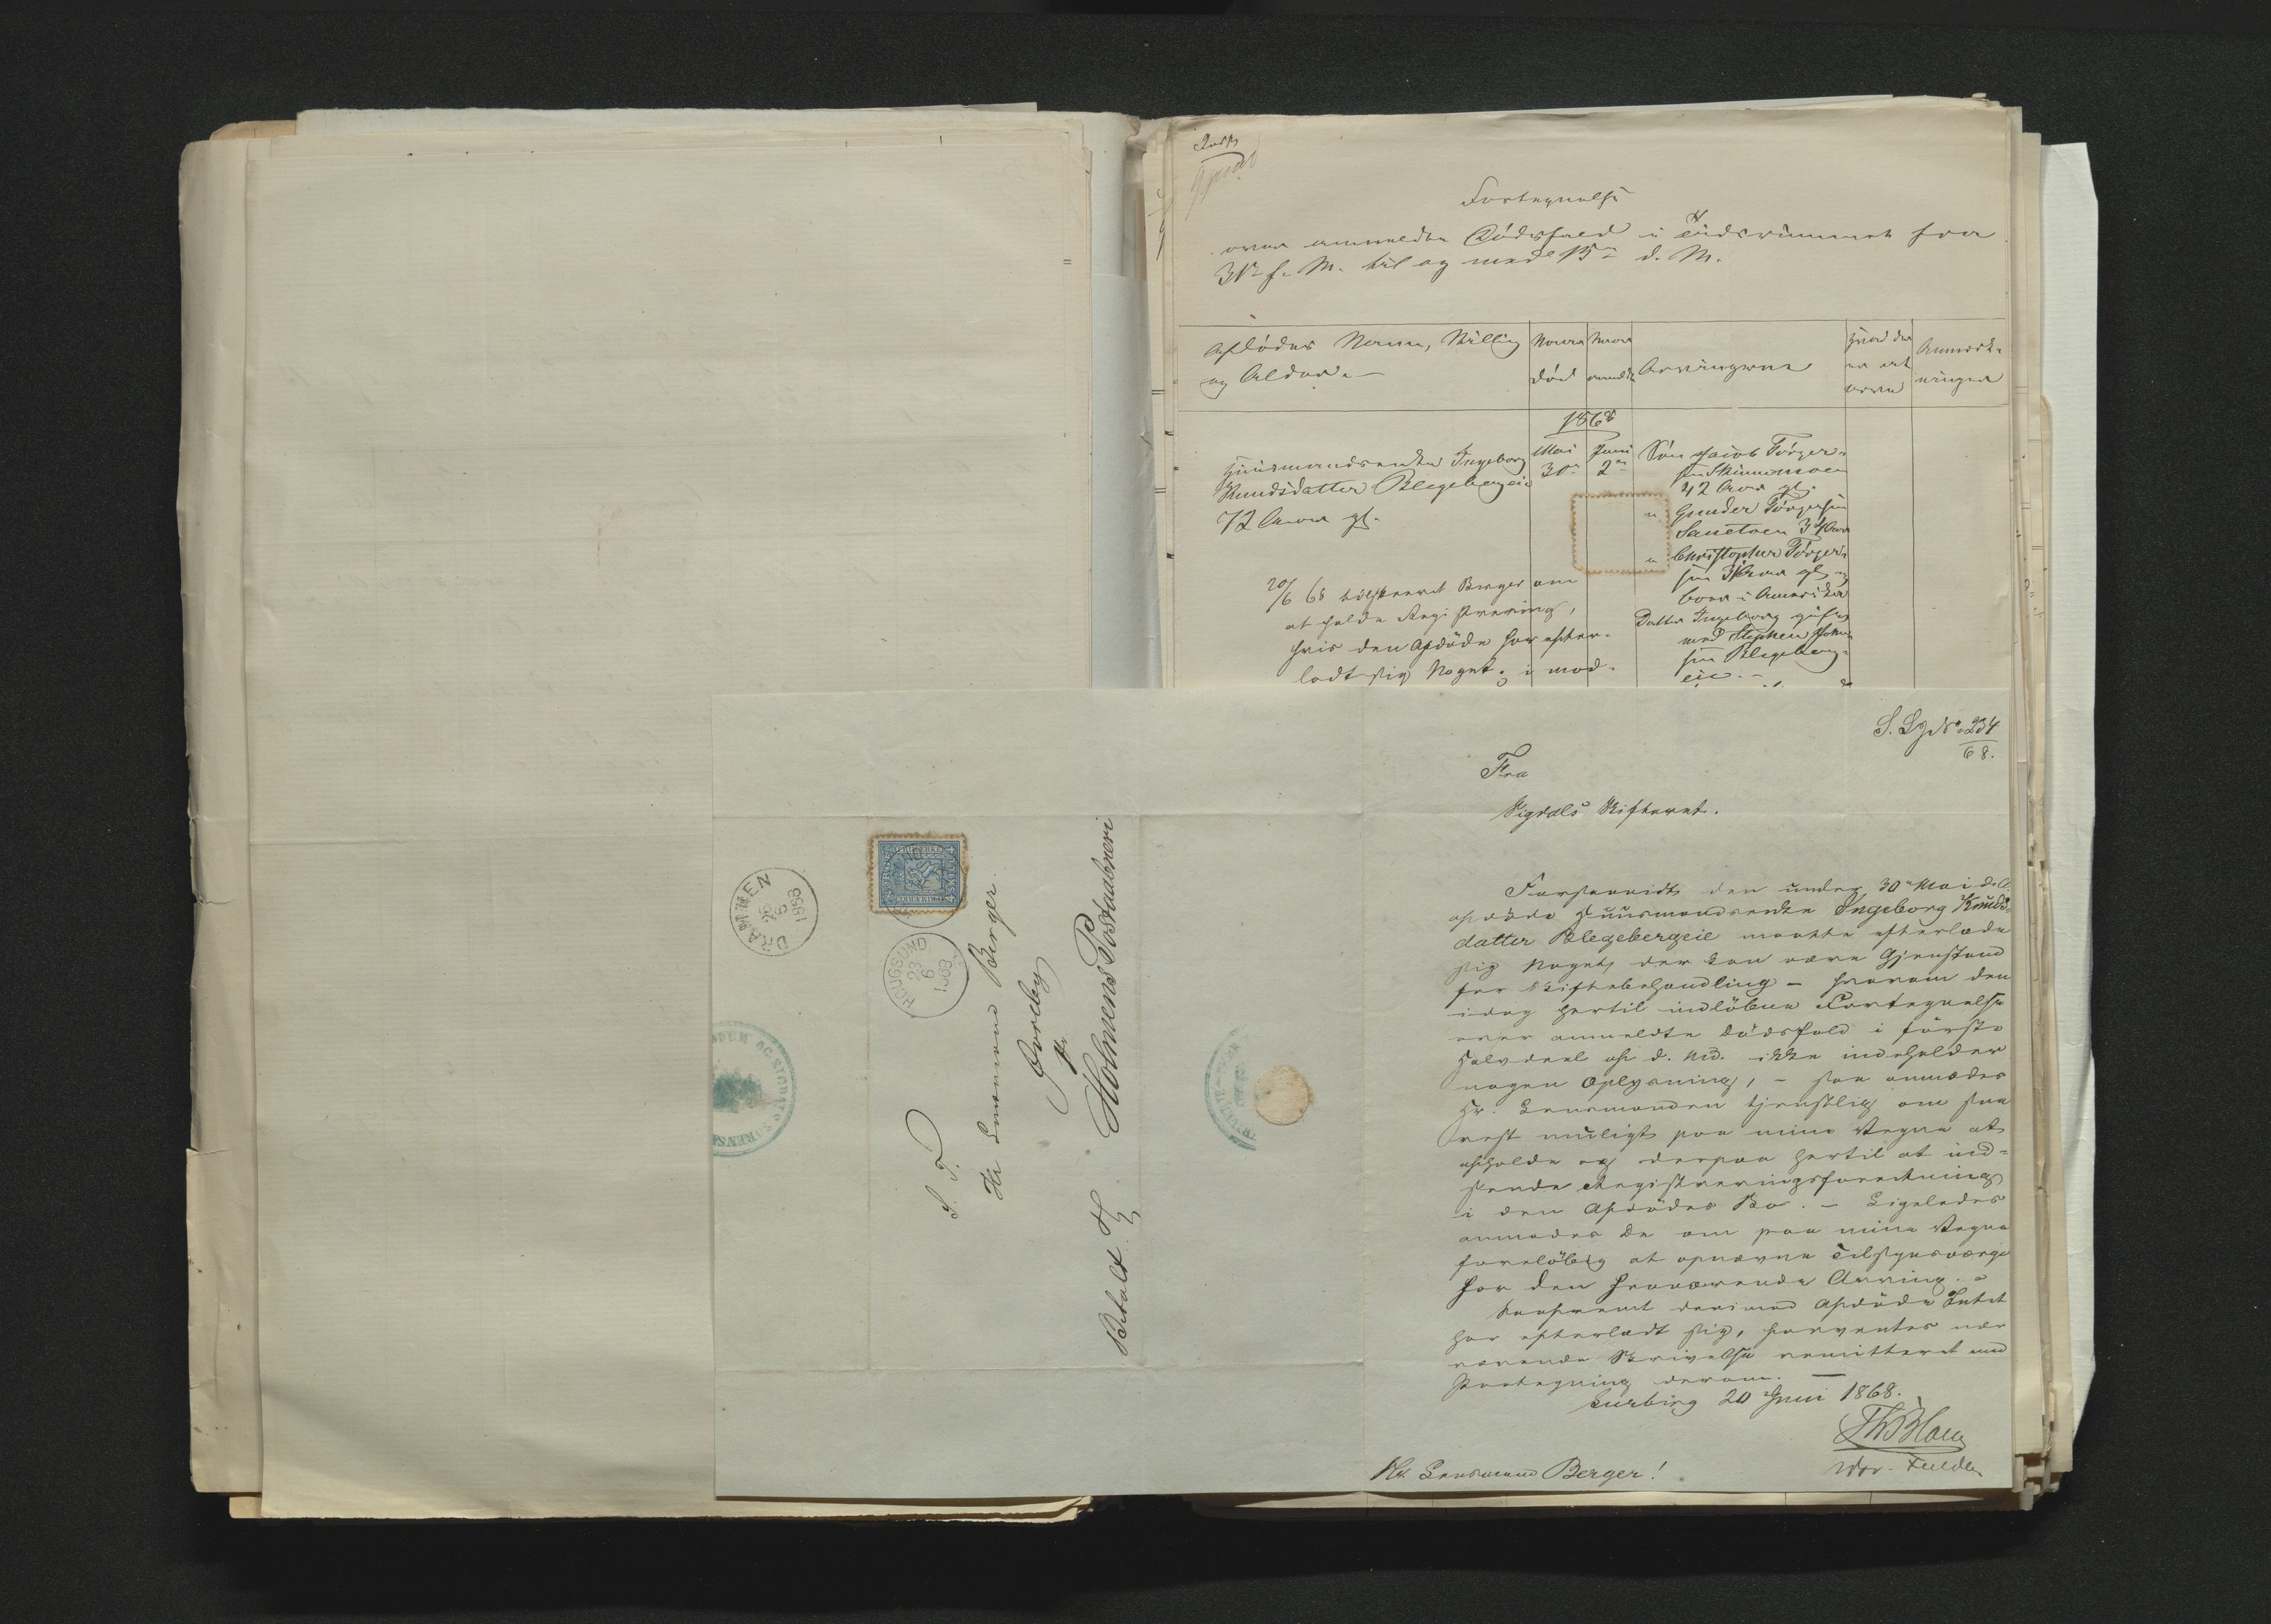 Fortegnelse
over anmeldte Dødsfald i Tidsrummet fra
31te f. M. til og med 15de d. M.
Afdødes Navn, Stilling
og Alder.
Naar
død
Naar
anmeldt
Arvingerne
Hvad der
er at
arve
Anmærk-
ninger
1868
Huusmandsenke Ingeborg
Knudsdatter Blegebergeie
72 Aar gl.
Mai
30te
Juni
2den
Søn Jacob Törger-
sen Skinnemoen
42 Aar gl.
" Gunder Törgersen
34 Aar
" Christopher Törger-
sen 31 Aar gl. og
boer i Amerika
Datter Ingeborg gift
med Stephen
sen Blegeberg-
eie.
20/6 68 tilskrevet Berger om
at holde Registrering,
hvis den Afdøde har efter-
ladt sig Noget; i mod-
S. L. No 234
68.
Fra
Sigdals Skifteret.
Forsaavidt den under 30te Mai d. A.
afdøde Huusmandsenke Ingeborg Knuds-
datter Blegebergeie maatte efterlade
sig Noget, der kan være Gjenstand
for Skiftebehandling – hvorom den
idag hertil indløbne Fortegnelse
over anmeldte Dødsfald i første
Halvdeel af d. Md. ikke indeholder
nogen Oplysning, – saa anmodes
Hr. Lensmanden tjenstlig om saa
vest muligt paa mine Vegne at
afholde og derpaa hertil at ind-
sende Registreringsforretning
i den Afdødes Bo. – Ligeledes
anmodes De om paa mine Vegne
foreløbig at opnævne Tilsynsværge
for den fraværende Arving.
Saafremt derimod Afdøde Intet
har efterladt sig, forventes nær
værende Skrivelse remitteret med
Paategning derom. –
Lurbing 20 Juni 1868.
Th Blom
Hr Lensmand Berger!
DRAMMEN
26
6
1868
HOUGSUND
23
6
1868
FRIMERKE
4 SKILL
S. T.
Hr Lensmand Berger.
Foreby
pr
Holmens Postaabneri
Betalt 4
OG SIGDALS SORENS